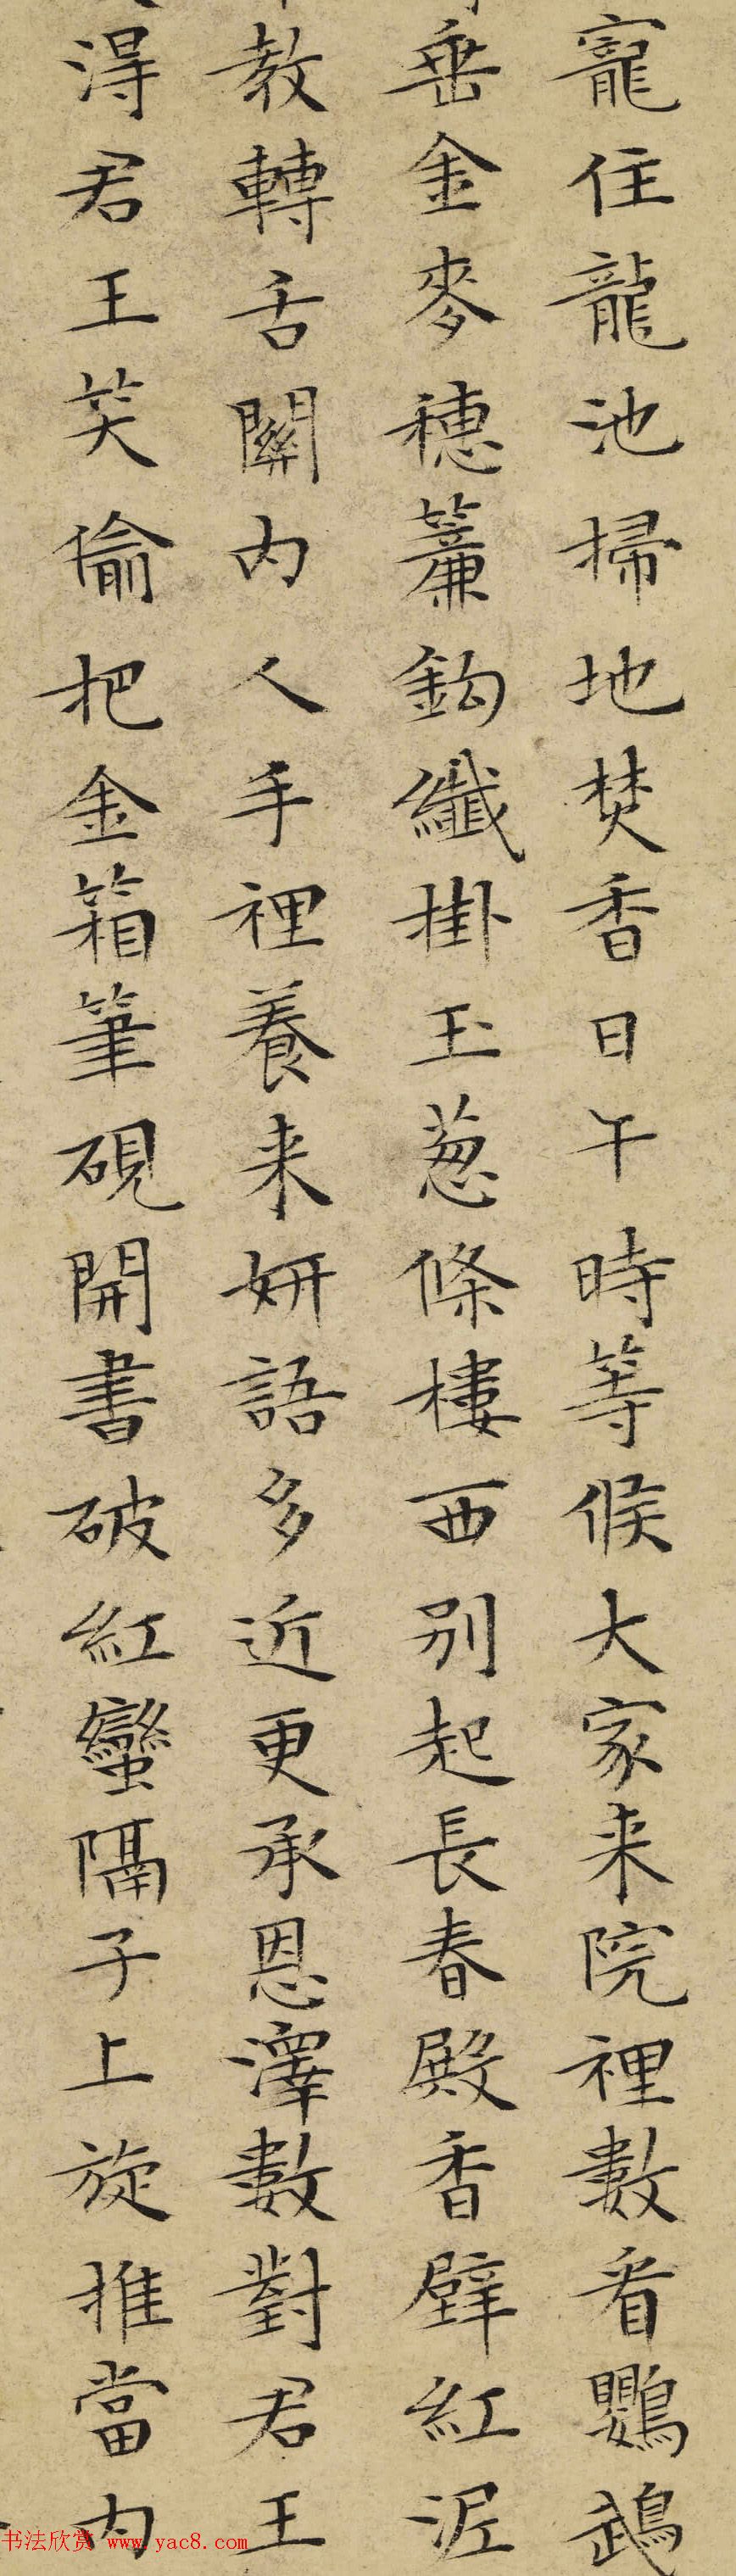 寵住龍池掃地焚香日午時等候大家来院裡數看鸚鵡
垂金麥穗簾鈎纖掛玉葱條樓西别起長春殿香壁紅泥
教轉舌關内人手裡養来妍語多近更承恩澤數對君王
得君王笑偷把金箱筆硯開書破紅蠻隔子上旋推當内
书法欣赏 www.yac8.com